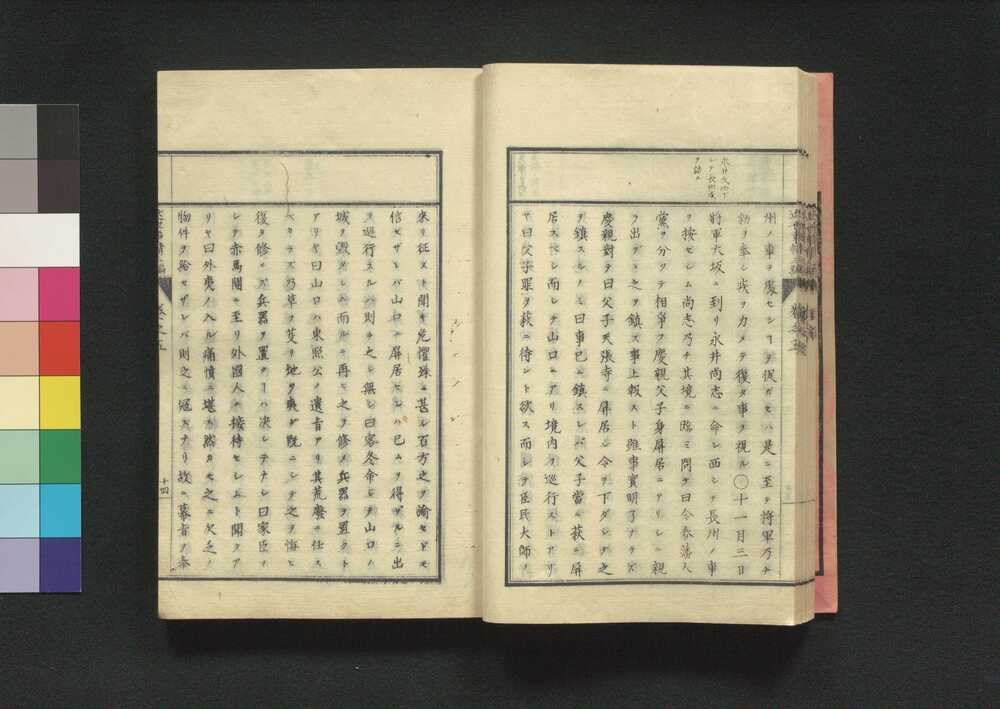 永井尚志下
シテ長州ノ事
ヲ按ス
州ノ事ヲ處セシヿヲ促ガセハ是ニ至テ将軍乃チ
勅ヲ奉シ疾ヲ力メテ復タ事ヲ視ル〇十一月三日
将軍大坂ニ到リ永井尚志ニ命シ西シテ長州ノ事
ヲ按セシム尚志乃チ其境ニ臨ミ問テ曰今春藩人
黨ヲ分ツテ相爭フ慶親父子身屏居ニアリシニ親
ラ出デヽ之ヲ鎮ス事上報スト雖事實明了ナラズ
慶親對テ曰父子天張寺ニ屏居シ令ヲ下ダシテ之
ヲ鎮スルノミ曰事已ニ鎮スレバ父子當ニ萩ニ屏
居スベシ而シテ山口ニアリ境内ヲ巡行ストアリ
ヤ曰父子罪ヲ萩ニ待ント欲ス而シテ臣民大師ノ
來リ征スト聞キ危懼殊ニ甚シ百方之ヲ諭セドモ
信ゼザレバ山口ニ屏居セシハ已ムヲ得ザルニ出
ス巡行スルハ則チ之レ無シ曰客冬命シテ山口ノ
城ヲ毀タシム而ルヲ再ヒ之ヲ修メ兵器ヲ置クト
アリヤ曰山口ハ東照公ノ遺旨アリ其荒廢ニ任ス
ベカラズ乃草ヲ芟リ地ヲ夷グ既ニシテ之ヲ悔ヒ
復タ修セズ兵器ヲ置クヿハ决シテナシ曰家臣ヲ
シテ赤馬關ニ至リ外國人ヲ接待セシムト聞クア
リヤ曰外夷ノ入ル痛憤ニ堪ヘ然カモ之ニ欠乏ノ
物件ヲ給セザレバ則之ニ冠スナリ故ニ幕旨ヲ奉
十四